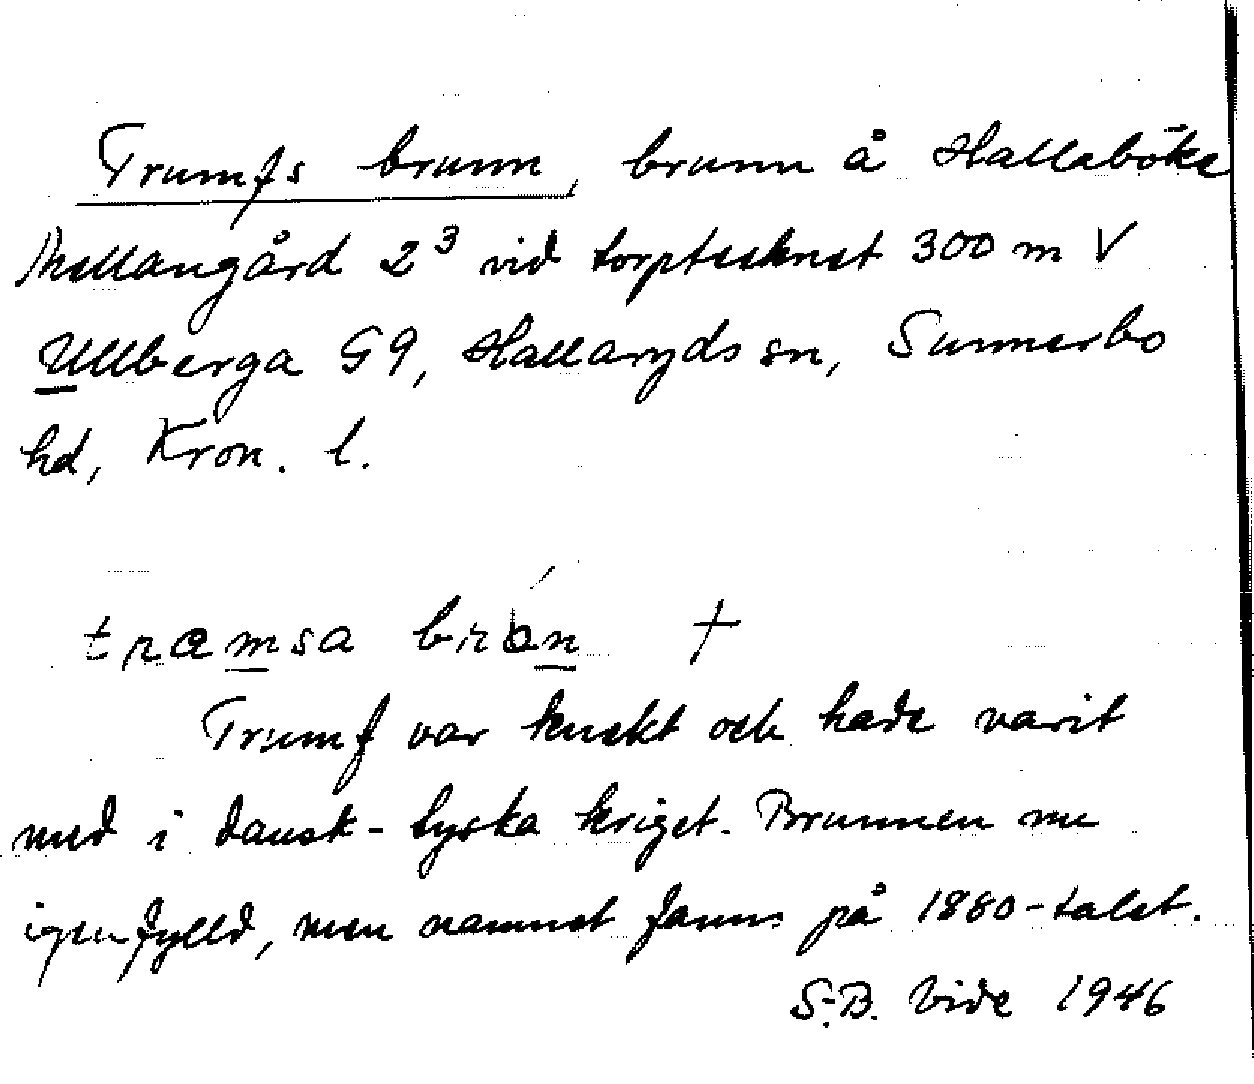 Trumfs brunn, brunn å Hallaböke
Mellangård 2³ vid torptecknet 300 m V
Ullberga G9, Hallaryds sn, Sunnerbo
hd, Kron. l.
tramsa brón †
Trumf var knekt och hade varit
med i dansk-tyska kriget. Brunnen nu
igenfylld, men namnet fanns på 1880-talet.
S.B. Vide 1946